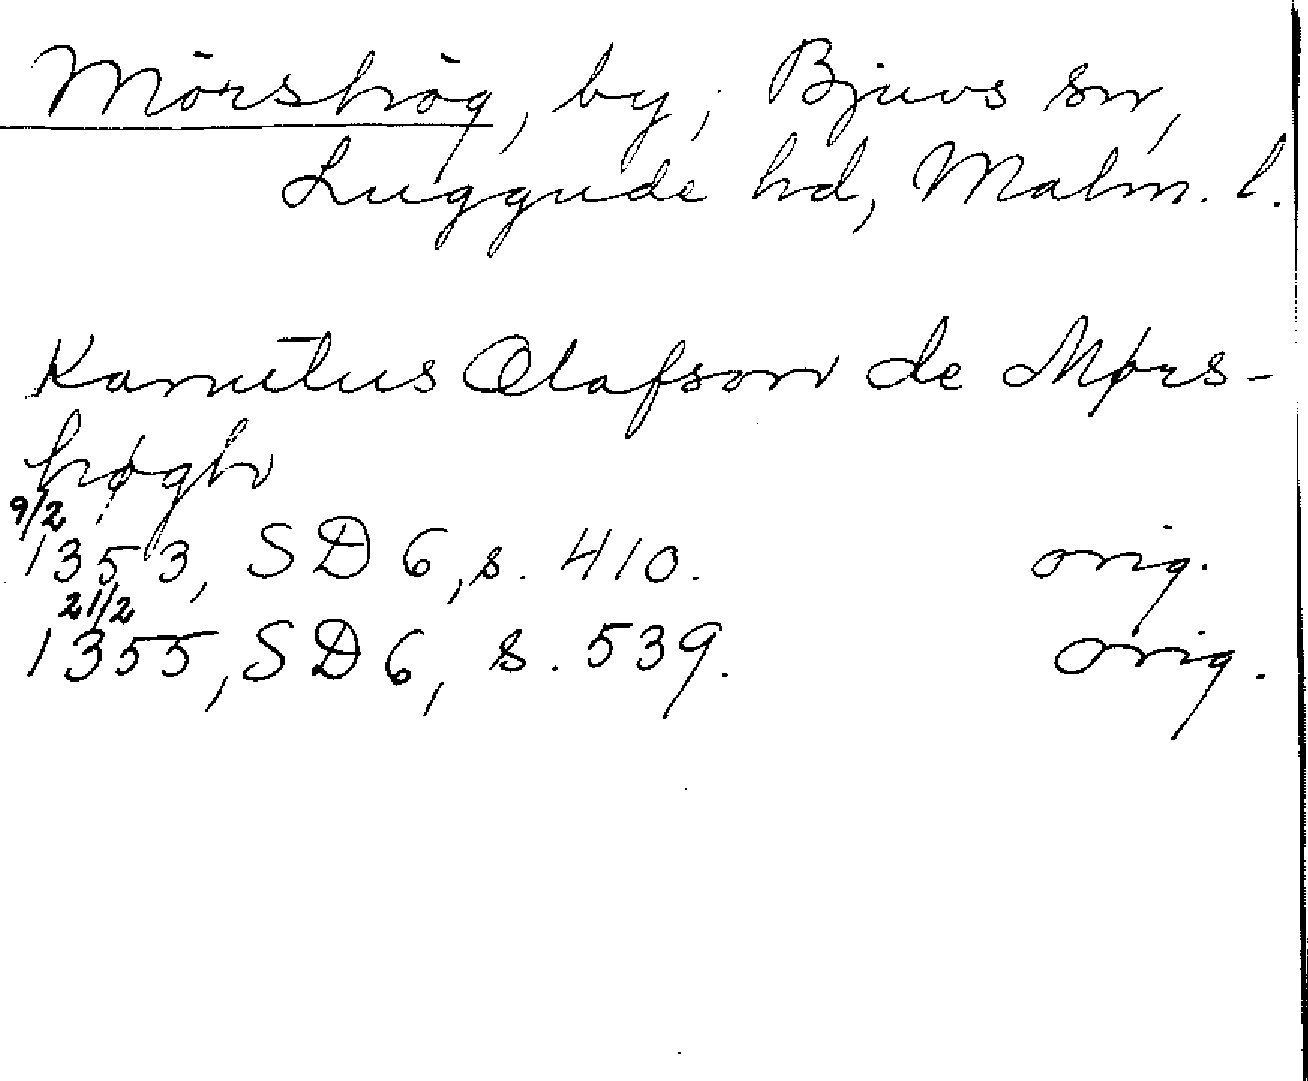 Mörshög, by, Bjuvs sn,
Luggude hd, Malm. l.
Kanutus Olafson de Mørs-
høgh
9/2
1353, SD 6, s. 410. orig.
21/2
1355, SD 6, s. 539. orig.